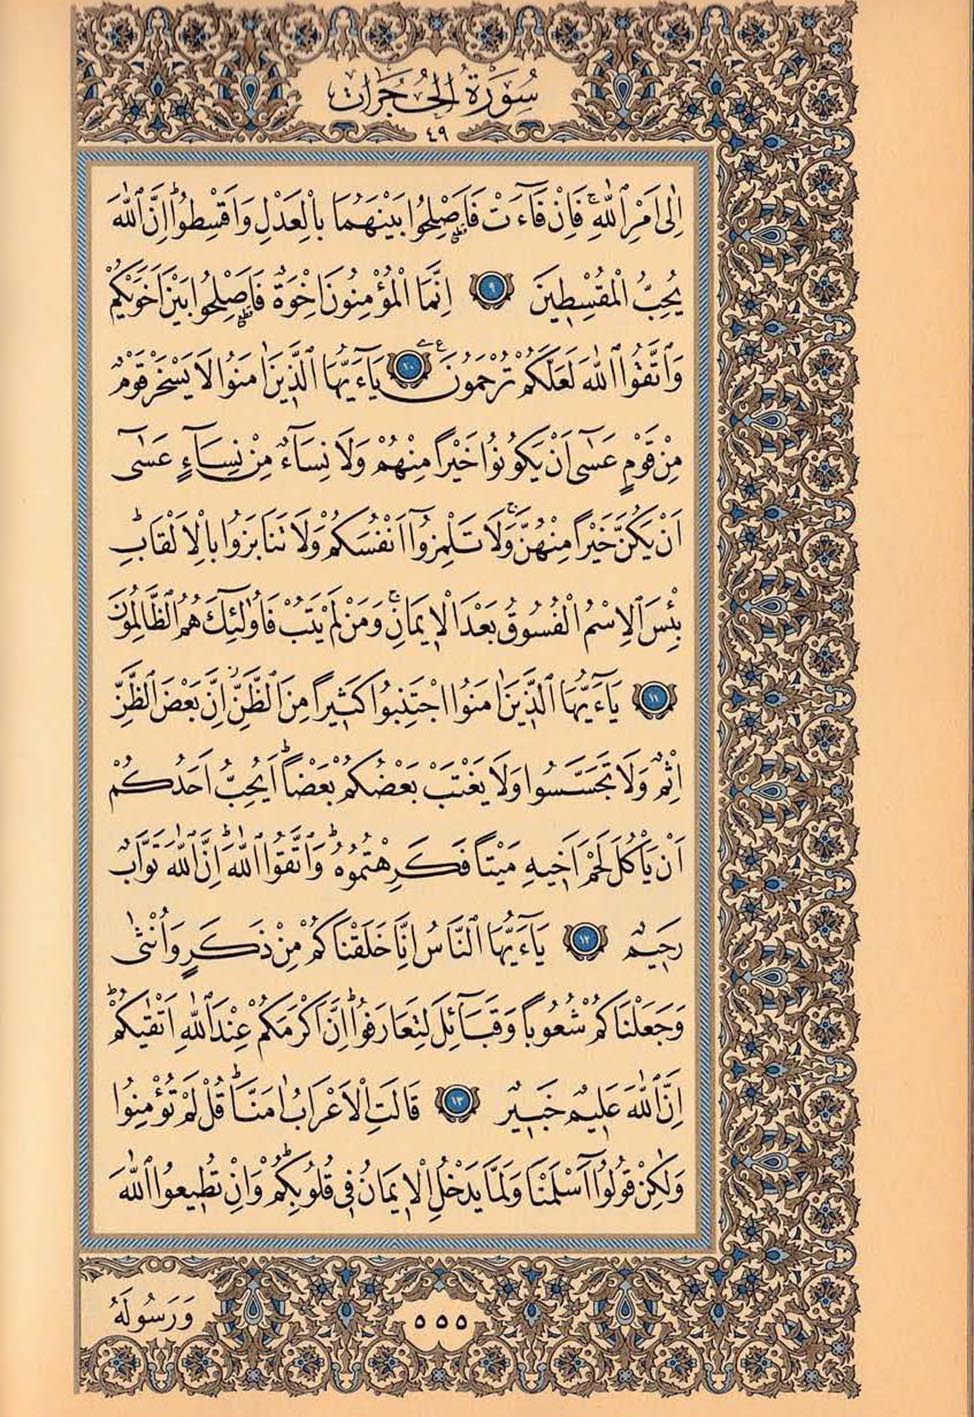 سُورَةُ الْحُجُرَاتِ
٤٩
اِلٰٓى اَمْرِ اللّٰهِۚ فَاِنْ فَٓاءَتْ فَاَصْلِحُوا بَيْنَهُمَا بِالْعَدْلِ وَاَقْسِطُواۜ اِنَّ اللّٰهَ
يُحِبُّ الْمُقْسِط۪ينَ ٩ اِنَّمَا الْمُؤْمِنُونَ اِخْوَةٌ فَاَصْلِحُوا بَيْنَ اَخَوَيْكُمْ
وَاتَّقُوا اللّٰهَ لَعَلَّكُمْ تُرْحَمُونَ۟ ١٠ يَٓا اَيُّهَا الَّذ۪ينَ اٰمَنُوا لَا يَسْخَرْ قَوْمٌ
مِنْ قَوْمٍ عَسٰٓى اَنْ يَكُونُوا خَيْرًا مِنْهُمْ وَلَا نِسَٓاءٌ مِنْ نِسَٓاءٍ عَسٰٓى
اَنْ يَكُنَّ خَيْرًا مِنْهُنَّۚ وَلَا تَلْمِزُٓوا اَنْفُسَكُمْ وَلَا تَنَابَزُوا بِالْاَلْقَابِۜ
بِئْسَ الِاسْمُ الْفُسُوقُ بَعْدَ الْا۪يمَانِۚ وَمَنْ لَمْ يَتُبْ فَاُو۬لٰٓئِكَ هُمُ الظَّالِمُونَ
١١ يَٓا اَيُّهَا الَّذ۪ينَ اٰمَنُوا اجْتَنِبُوا كَث۪يرًا مِنَ الظَّنِّۘ اِنَّ بَعْضَ الظَّنِّ
اِثْمٌ وَلَا تَجَسَّسُوا وَلَا يَغْتَبْ بَعْضُكُمْ بَعْضًاۜ اَيُحِبُّ اَحَدُكُمْ
اَنْ يَأْكُلَ لَحْمَ اَخ۪يهِ مَيْتًا فَكَرِهْتُمُوهُۜ وَاتَّقُوا اللّٰهَۜ اِنَّ اللّٰهَ تَوَّابٌ
رَح۪يمٌ ١٢ يَٓا اَيُّهَا النَّاسُ اِنَّا خَلَقْنَاكُمْ مِنْ ذَكَرٍ وَاُنْثٰى
وَجَعَلْنَاكُمْ شُعُوبًا وَقَبَٓائِلَ لِتَعَارَفُواۜ اِنَّ اَكْرَمَكُمْ عِنْدَ اللّٰهِ اَتْقٰيكُمْۜ
اِنَّ اللّٰهَ عَل۪يمٌ خَب۪يرٌ ١٣ قَالَتِ الْاَعْرَابُ اٰمَنَّاۜ قُلْ لَمْ تُؤْمِنُوا
وَلٰكِنْ قُولُٓوا اَسْلَمْنَا وَلَمَّا يَدْخُلِ الْا۪يمَانُ ف۪ي قُلُوبِكُمْۜ وَاِنْ تُط۪يعُوا اللّٰهَ
وَرَسُولَهُ
٥٥٥